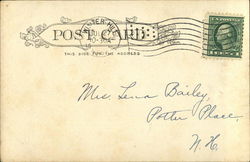 POST CARD
THIS SIDE FOR THE ADDRESS
Miss Lena Bailey,
Potter Place,
N.H.